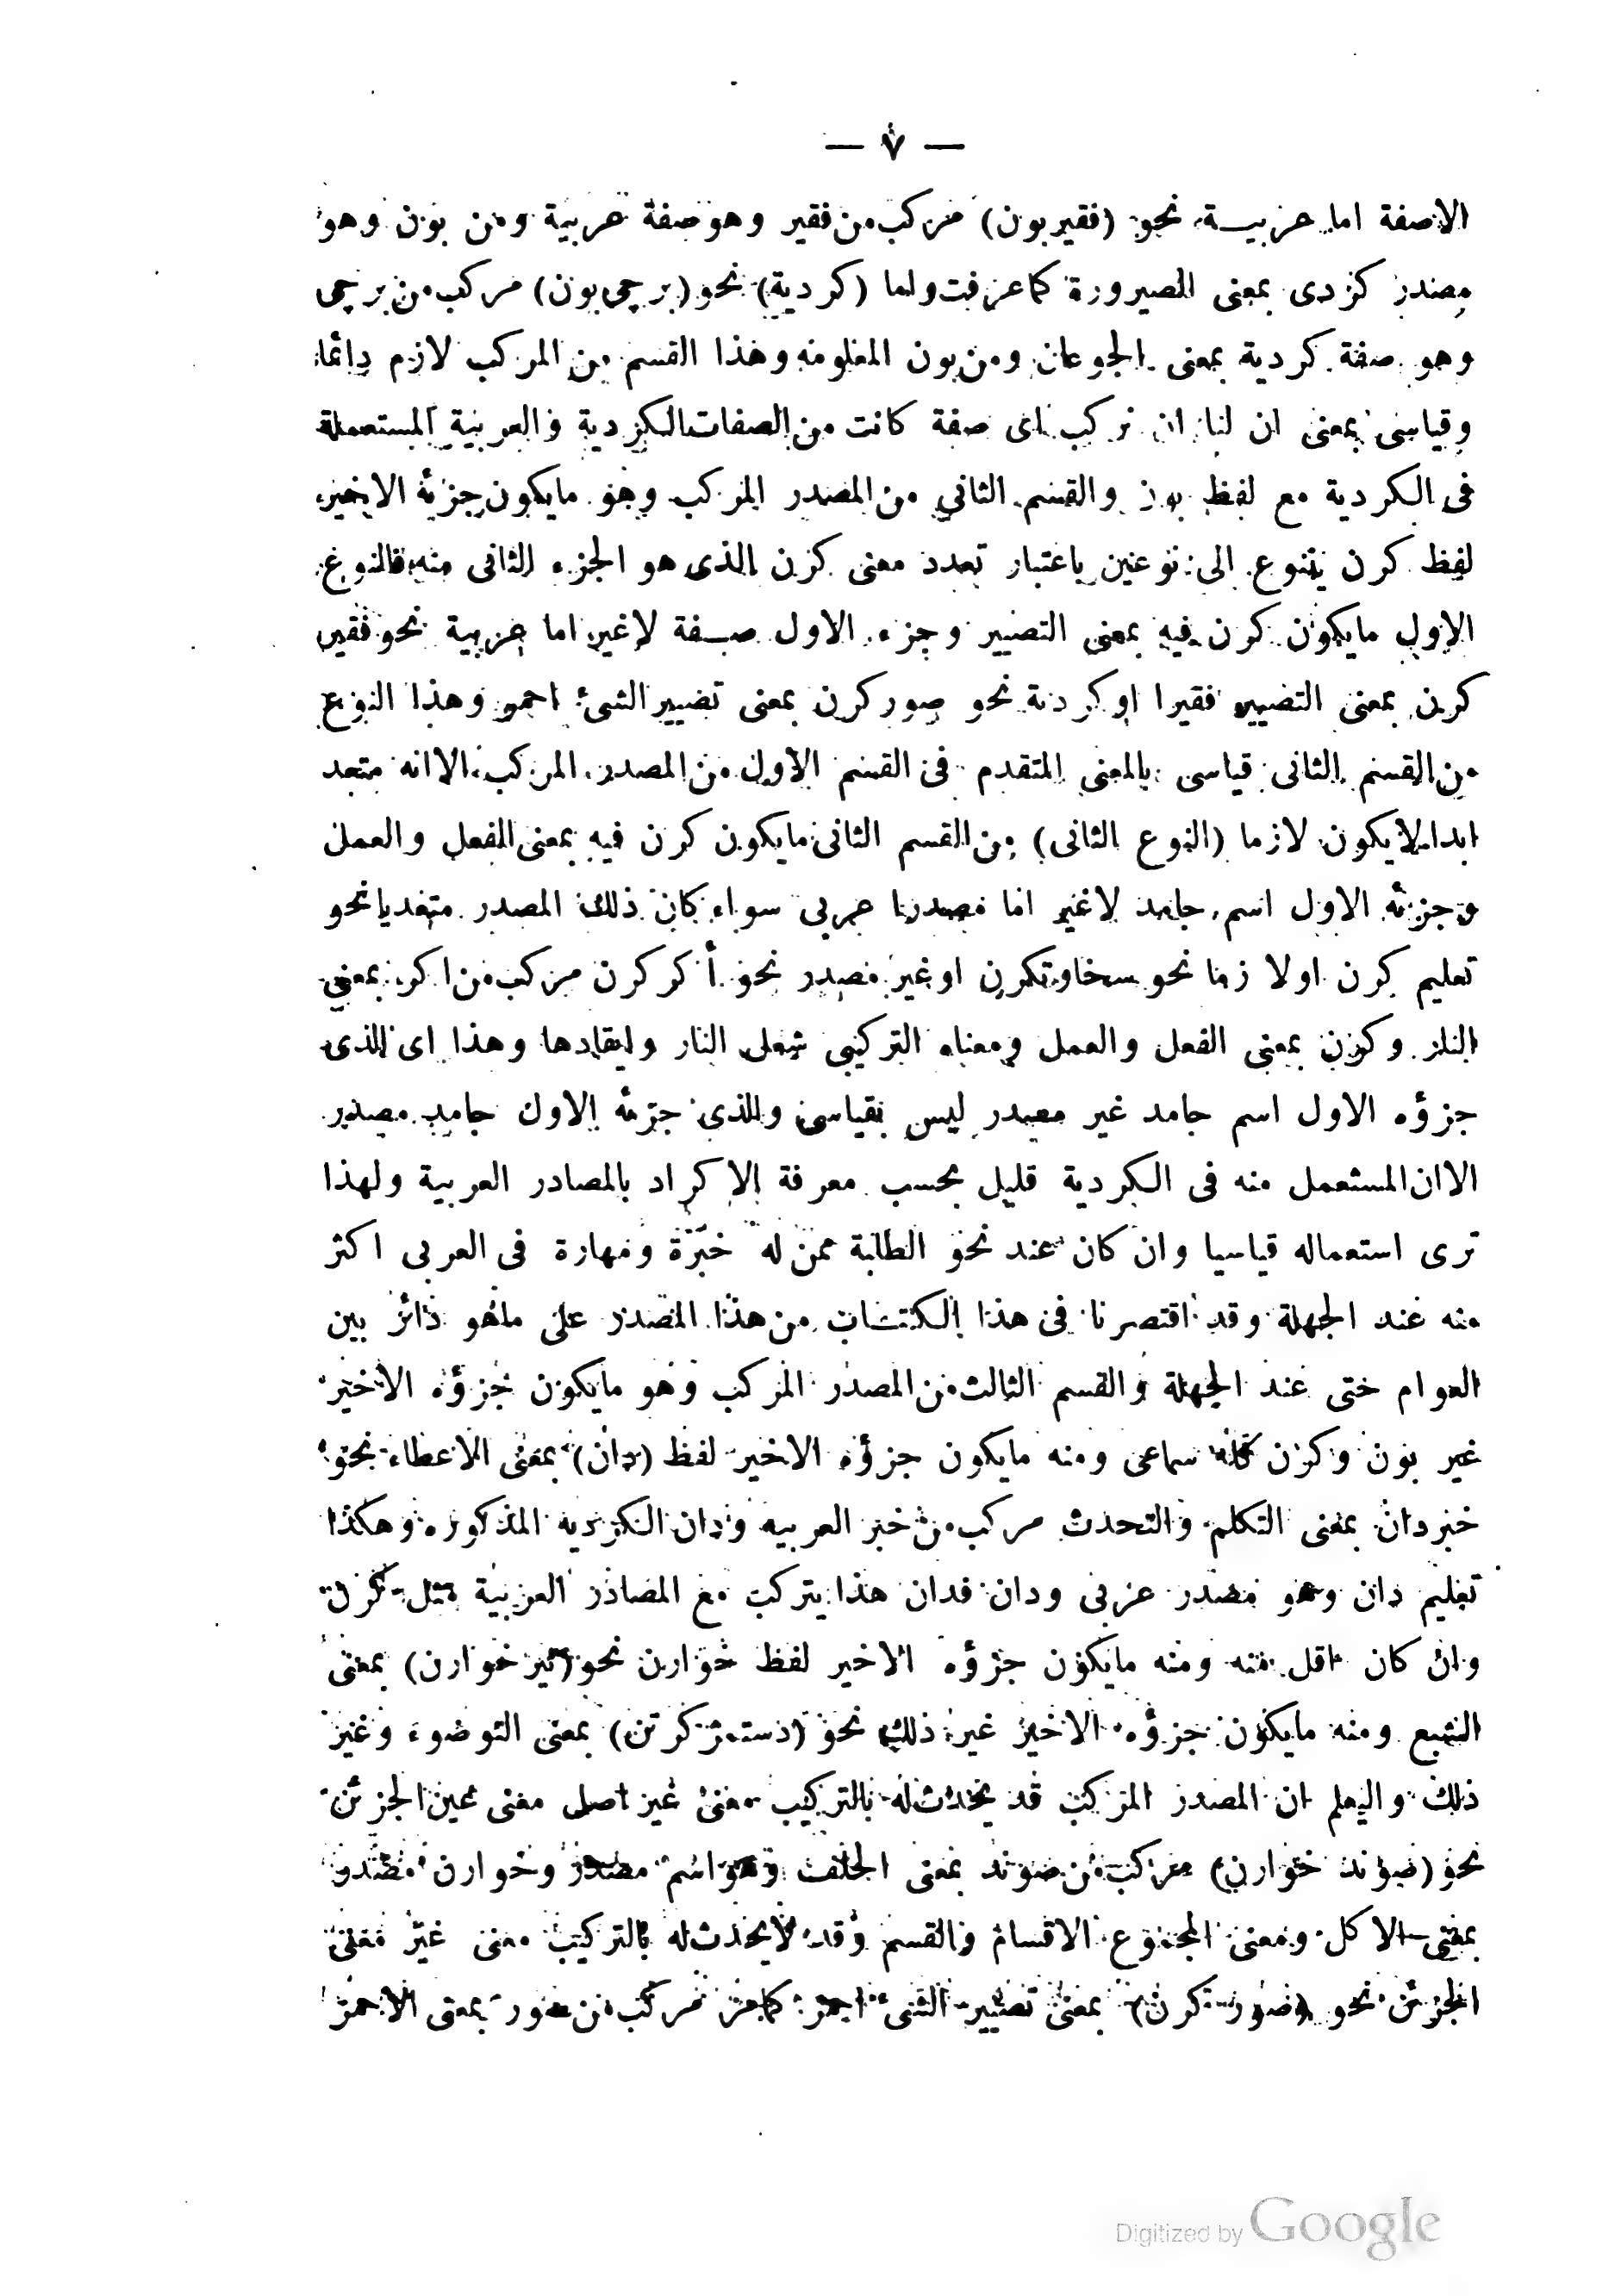 — ٧ —
الاصفة اما عربيـة نحو (فقير بون) مركب من فقير وهو صفة عربية ومن بون وهو
مصدر كردى بمعنى الصيرورة كما عرفت واما (كردية) نحو (برچى بون) مركب من برچى
وهو صفة كردية بمعنى الجوعان ومن بون المعلومه وهذا القسم من المركب لازم دائما
وقياسى بمعنى ان لنا ان نركب اى صفة كانت من الصفات الكردية والعربية المستعملة
فى الكردية مع لفظ بون والقسم الثانى من المصدر المركب وهو مايكون جزئه الاخير
لفظ كرن يتنوع الى نوعين باعتبار تعدد معنى كرن الذى هو الجزء الثانى منه فالنوع
الاول مايكون كرن فيه بمعنى التصيير وجزء الاول صـفة لاغير اما عربية نحو فقير
كرن بمعنى التصيير فقيرا او كردية نحو صور كرن بمعنى تصيير الشئ احمر وهذا النوع
من القسم الثانى قياسى بالمعنى المتقدم فى القسم الاول من المصدر المركب الا انه متعد
ابدا لايكون لازما (النوع الثانى) من القسم الثانى مايكون كرن فيه بمعنى الفعل والعمل
وجزئه الاول اسم جامد لاغير اما مصدرا عربى سواء كان ذلك المصدر متعديا نحو
تعليم كرن اولا زما نحو سخاوتكرن او غير مصدر نحو أكر كرن مركب من اكر بمعنى
النار وكرن بمعنى الفعل والعمل ومعناه التركيبى شعل النار وايقادها وهذا اى الذى
جزؤه الاول اسم جامد غير مصدر ليس بقياسى والذى جزئه الاول جامد مصدر
الا ان المستعمل منه فى الكردية قليل بحسب معرفة الاكراد بالمصادر العربية ولهذا
ترى استعماله قياسيا وان كان عند نحو الطلبة ممن له خبرة ومهارة فى العربى اكثر
منه عند الجهلة وقد اقتصرنا فى هذا الكتـاب من هذا المصدر على ماهو دائر بين
العوام حتى عند الجهلة والقسم الثالث من المصدر المركب وهو مايكون جزؤه الاخير
غير بون وكرن فانه سماعى ومنه مايكون جزؤه الاخير لفظ (دان) بمعنى الاعطاء نحو
خبردان بمعنى التكلم والتحدث مركب من خبر العربيه ودان الكرديه المذكوره وهكذا
تعليم دان وهو مصدر عربى ودان فدان هذا يتركب مع المصادر العربية مثل كرن
وان كان اقل منه ومنه مايكون جزؤه الاخير لفظ خوارن نحو (تير خوارن) بمعنى
الشبع ومنه مايكون جزؤه الاخير غير ذلك نحو (دستمژ كرتن) بمعنى التوضوء وغير
ذلك واليعلم ان المصدر المركب قد يحدث له بالتركيب معنى غير اصل معنى عين الجزئن
نحو (صوند خوارن) مركب من صوند بمعنى الحلف وهو اسم مصدر وخوارن مصدر
بمعنى الاكل ومعنى المجموع الاقسام والقسم وقد لايحدث له بالتركيب معنى غير معنى
الجزئن نحو (صور كرن) بمعنى تصيير الشئ احمر كما مر مركب من صور بمعنى الاحمر
Digitized by Google